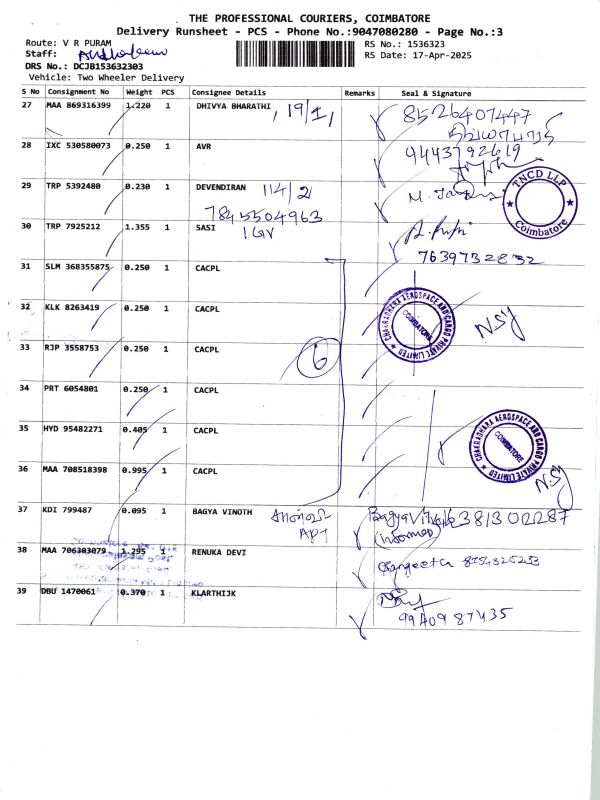 THE PROFESSIONAL COURIERS, COIMBATORE
Delivery Runsheet - PCS - Phone No.:9047080280 - Page No.:3
Route: V R PURAM
RS No.: 1536323
Staff:
RS Date: 17-Apr-2025
DRS No.: DCJB153632303
Vehicle: Two Wheeler Delivery
S No Consignment No Weight PCS Consignee Details Remarks Seal & Signature
27 MAA 869316399 1.220 1 DHIVYA BHARATHI , 19/1, 8526407447
28 IXC 530580073 0.250 1 AVR 9443792619
29 TRP 5392480 0.230 1 DEVENDIRAN 114/2
7845504963
TNCD LLP
Coimbatore
30 TRP 7925212 1.355 1 SASI
7639732832
31 SLM 368355875 0.250 1 CACPL
32 KLK 8263419 0.250 1 CACPL
CHAKRADHARA AEROSPACE AND CARGO PRIVATE LIMITED
COIMBATORE
33 RJP 3558753 0.250 1 CACPL
6
34 PRT 6054801 0.250 1 CACPL
35 HYD 95482271 0.405 1 CACPL
CHAKRADHARA AEROSPACE AND CARGO PRIVATE LIMITED
COIMBATORE
36 MAA 708518398 0.995 1 CACPL
37 KDI 799487 0.095 1 BAGYA VINOTH
38 MAA 706303079 1.295 1 RENUKA DEVI Sangeetha
39 DBU 1470061 0.370 1 KLARTHIJK
9940987435